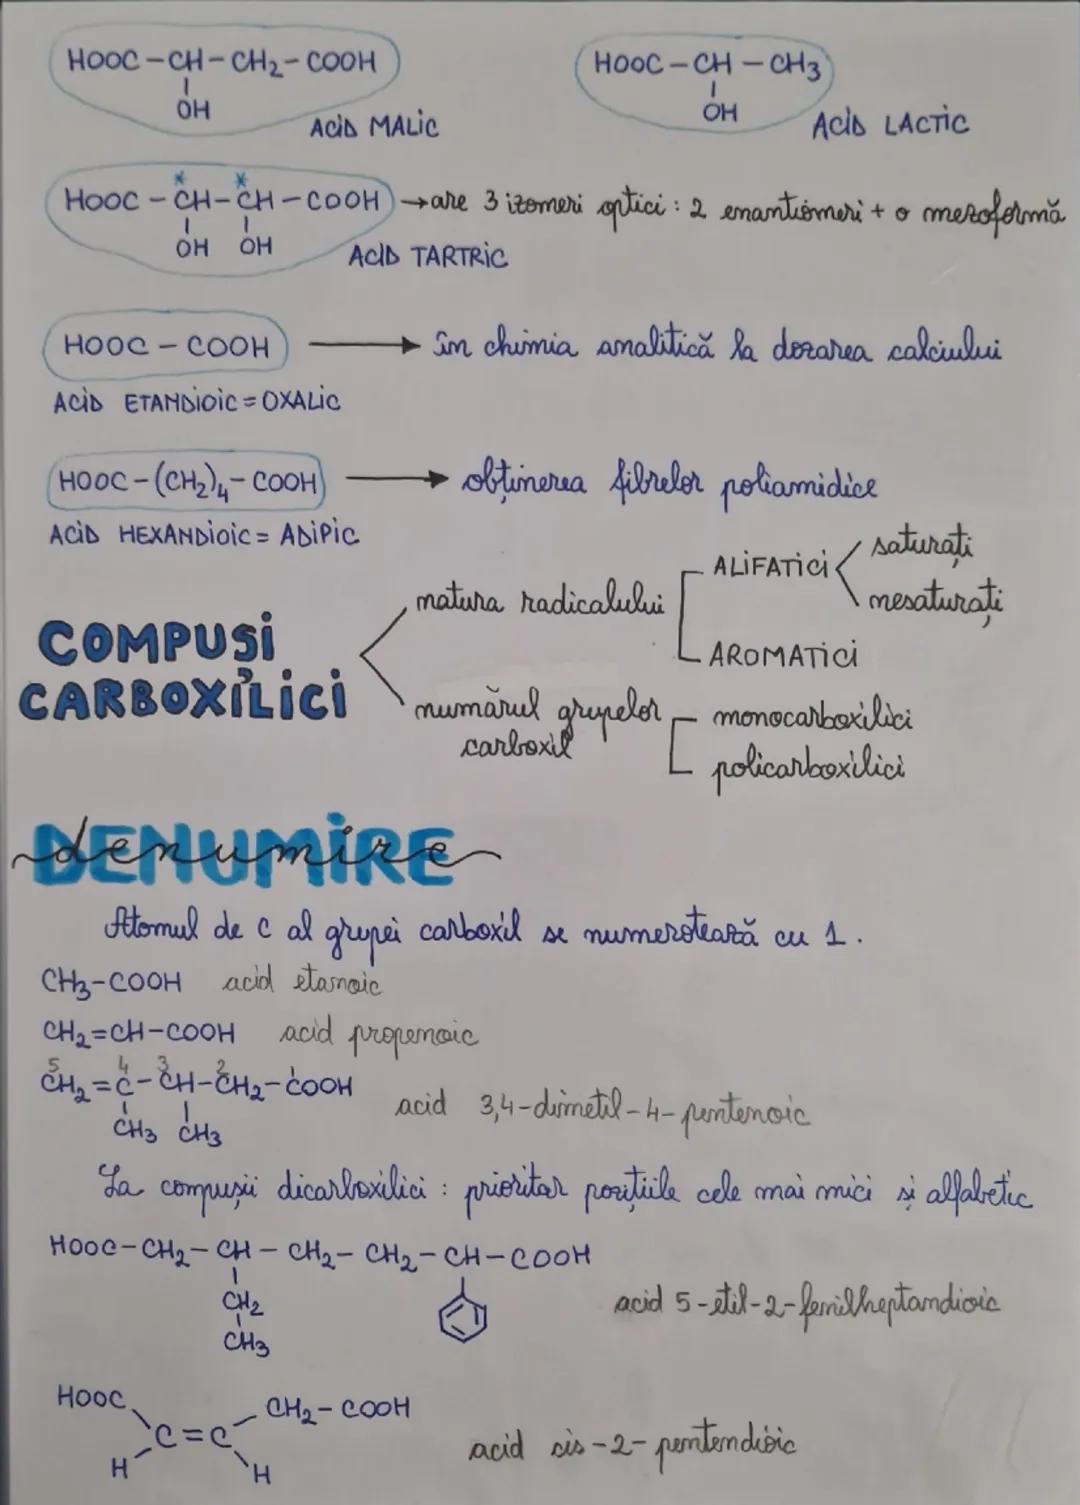 HOOC-CH-CH₂-COOH
OH
ACID MALIC
HOOC-CH-CH₃
OH
ACID LACTIC
HOOC-C*H-C*H-COOH → are 3 izomeri optici: 2 enantiomeri + o mezoformă
OH OH
ACID TARTRIC
HOOC-COOH → în chimia analitică la dozarea calciului
ACID ETANDIOIC = OXALIC
HOOC-(CH₂)₄-COOH → obținerea fibrelor poliamidice
ACID HEXANDIOIC = ADIPIC
COMPUȘI
CARBOXILICI
natura radicalului
ALIFATICI
saturați
nesaturați
AROMATICI
numărul grupelor
carboxil
monocarboxilici
policarboxilici
DENUMIRE
denumire
Atomul de C al grupei carboxil se numerotează cu 1.
CH₃-COOH acid etanoic
CH₂=CH-COOH acid propenoic
5 4 3 2 1
CH₂=C-CH-CH₂-COOH
CH₃ CH₃
acid 3,4-dimetil-4-pentenoic
La compușii dicarboxilici: prioritar pozițiile cele mai mici și alfabetic
HOOC-CH₂-CH-CH₂-CH₂-CH-COOH
CH₂
CH₃
acid 5-etil-2-fenilheptandioic
HOOC CH₂-COOH
C=C
H H
acid cis-2-pentendioic